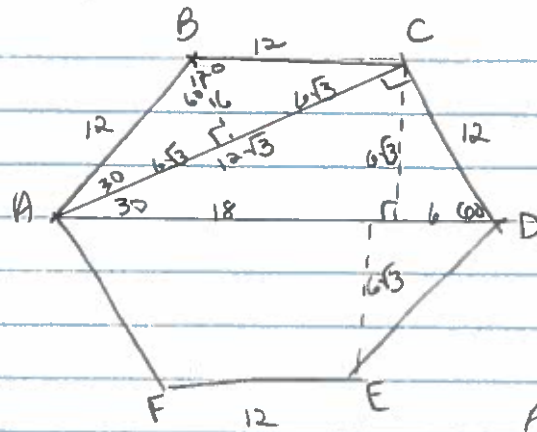 B 12 C
120
60 6 6√3
12 6√3 12√3 6√3 12
30
A 30 18 6 60 D
6√3
F 12 E
A